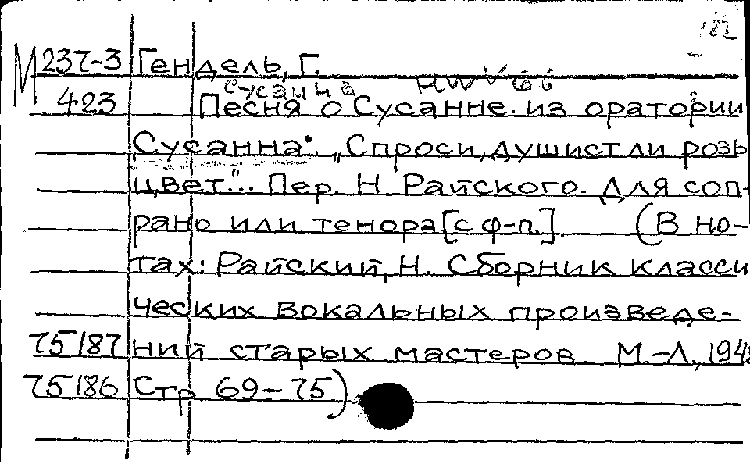 М 237-3 Гендель, Г.
Сусанна HWV 66
423 Песня о Сусанне. из оратории
Сусанна". „Спроси, душист ли розы
цвет..." Пер. Н. Райского. Для соп-
рано или тенора [с ф-п.]. (В но-
тах: Райский, Н. Сборник класси
ческих вокальных произведе-
75187 ний старых мастеров М-Л, 194
75186 Стр 69-75)